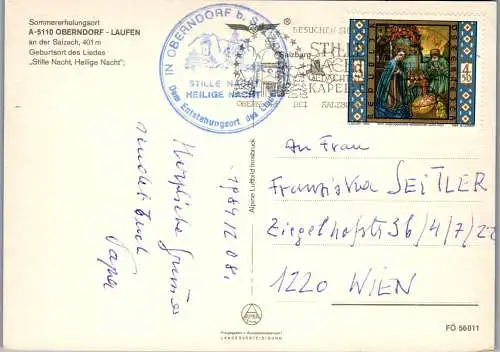 Sommererholungsort
A-5110 OBERNDORF - LAUFEN
an der Salzach, 401 m
Geburtsort des Liedes
„Stille Nacht, Heilige Nacht";
IN OBERNDORF b. S.
STILLE NACHT
HEILIGE NACHT
Dem Entstehungsort des
®
BESUCHEN SIE
Salzburg
STILLE
NACHT
GEDÄCHTNIS
KAPELLE
OBERNDORF BEI SALZBURG
4
50
1984 12 08.
Herzliche Grüsse
sendet Euch
Papa
Alpine Luftbild Innsbruck
An Frau
Franziska SEITLER
Ziegelhofstr 36/4/7/22
1220 WIEN
LANDESVERTEIDIGUNG
FÖ 56011